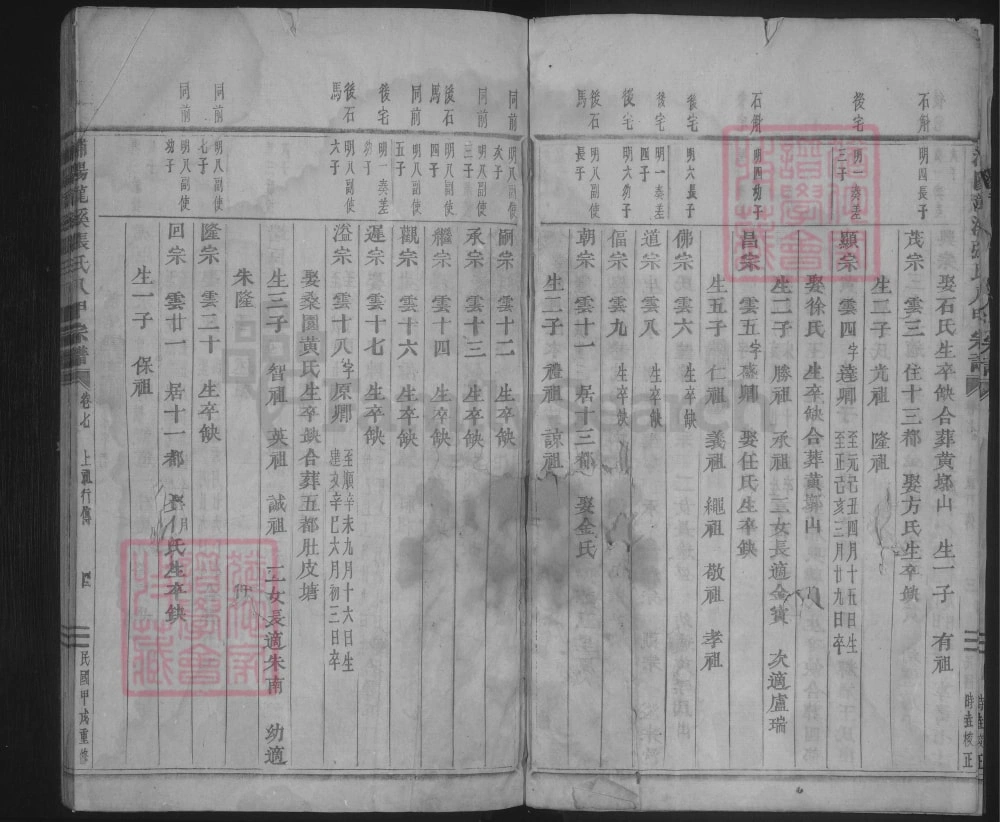 娶石氏生卒缺合葬黃墩山 生一子 有祖
石斛 明四長子 茂宗 雲三 住十三都 娶方氏生卒缺
生二子 光祖 隆祖
後宅 明一奏差三子 顯宗 雲四 字達卿 至元己丑四月十五日生 至正己亥三月廿九日卒
娶徐氏 生卒缺合葬黃墩山
生二子 勝祖 承祖 二女長適金寶 次適盧瑞
石斛 明四幼子 昌宗 雲五 字盛卿 娶任氏生卒缺
生五子 仁祖 義祖 繩祖 敬祖 孝祖
後宅 明六長子 佛宗 雲六 生卒缺
後宅 明一奏差四子 道宗 雲八 生卒缺
後宅 明六幼子 偪宗 雲九 生卒缺
後石馬 明八副使長子 朝宗 雲十一 居十三都 娶金氏
生二子 禮祖 諒祖
同前 明八副使次子 嗣宗 雲十二 生卒缺
同前 明八副使三子 承宗 雲十三 生卒缺
後石馬 明八副使四子 繼宗 雲十四 生卒缺
同前 明八副使五子 觀宗 雲十六 生卒缺
後宅 明一奏差幼子 遲宗 雲十七 生卒缺
後石馬 明八副使六子 溢宗 雲十八 字原卿 至順辛未九月十六日生 建文辛巳六月初三日卒
娶桑園黃氏生卒缺合葬五都肚皮塘
生三子 智祖 英祖 誠祖 二女長適朱南 幼適
朱隆
同前 明八副使七子 隆宗 雲二十 生卒缺
同前 明八副使幼子 回宗 雲廿一 居十一都 娶 氏生卒缺
生一子 保祖
浦陽龍溪張氏八甲宗譜 卷七 上祖行傳 四 民國甲戌重修